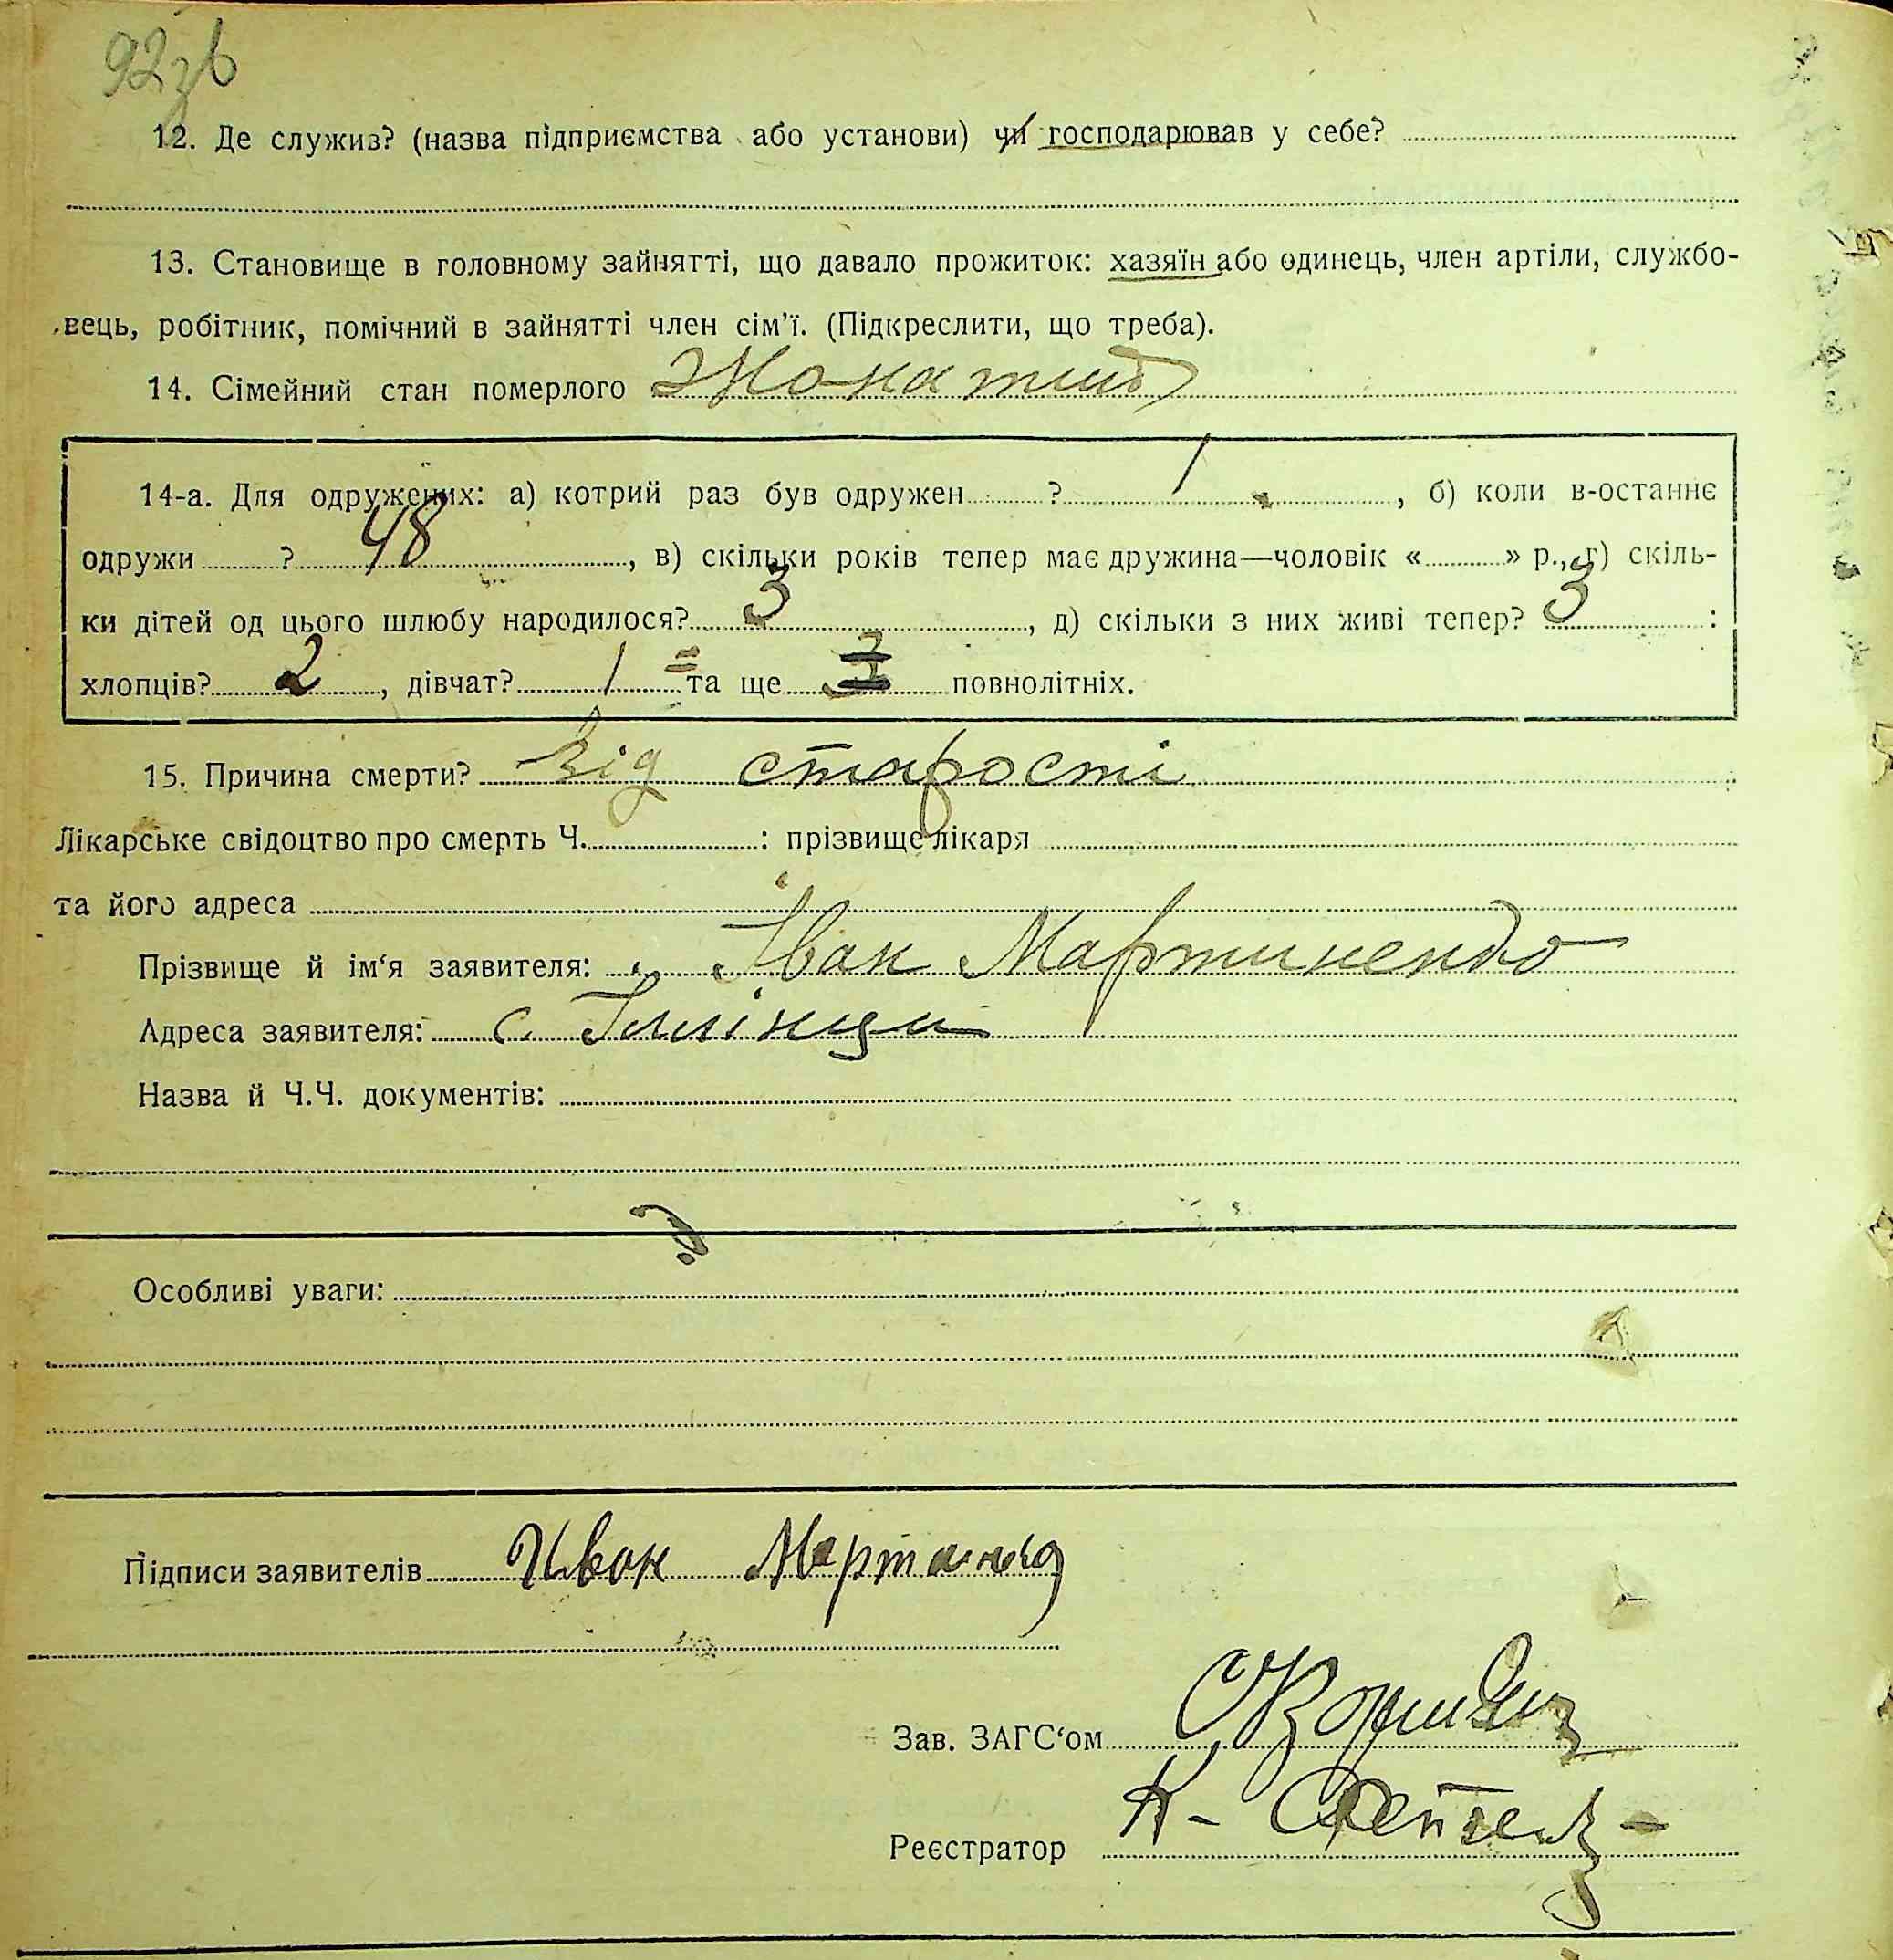 92зв
12. Де служив? (назва підприємства або установи) чи господарював у себе?
13. Становище в головному зайнятті, що давало прожиток: хазяїн або одинець, член артіли, службо-
вець, робітник, помічний в зайнятті член сім'ї. (Підкреслити, що треба).
14. Сімейний стан померлого Жонатий
14-а. Для одружених: а) котрий раз був одружен ? 1, б) коли в-останнє
одружи ? 48, в) скільки років тепер має дружина—чоловік « » р., г) скіль-
ки дітей од цього шлюбу народилося? 3, д) скільки з них живі тепер? 3 :
хлопців? 2, дівчат? 1 = та ще 3 повнолітніх.
15. Причина смерти? Від старости
Лікарське свідоцтво про смерть Ч. : прізвище лікаря
та його адреса
Прізвище й ім'я заявителя: Іван Мартиненко
Адреса заявителя: с. Іллінци
Назва й Ч.Ч. документів:
Особливі уваги:
Підписи заявителів Иван
Зав. ЗАГС'ом
Реєстратор К-